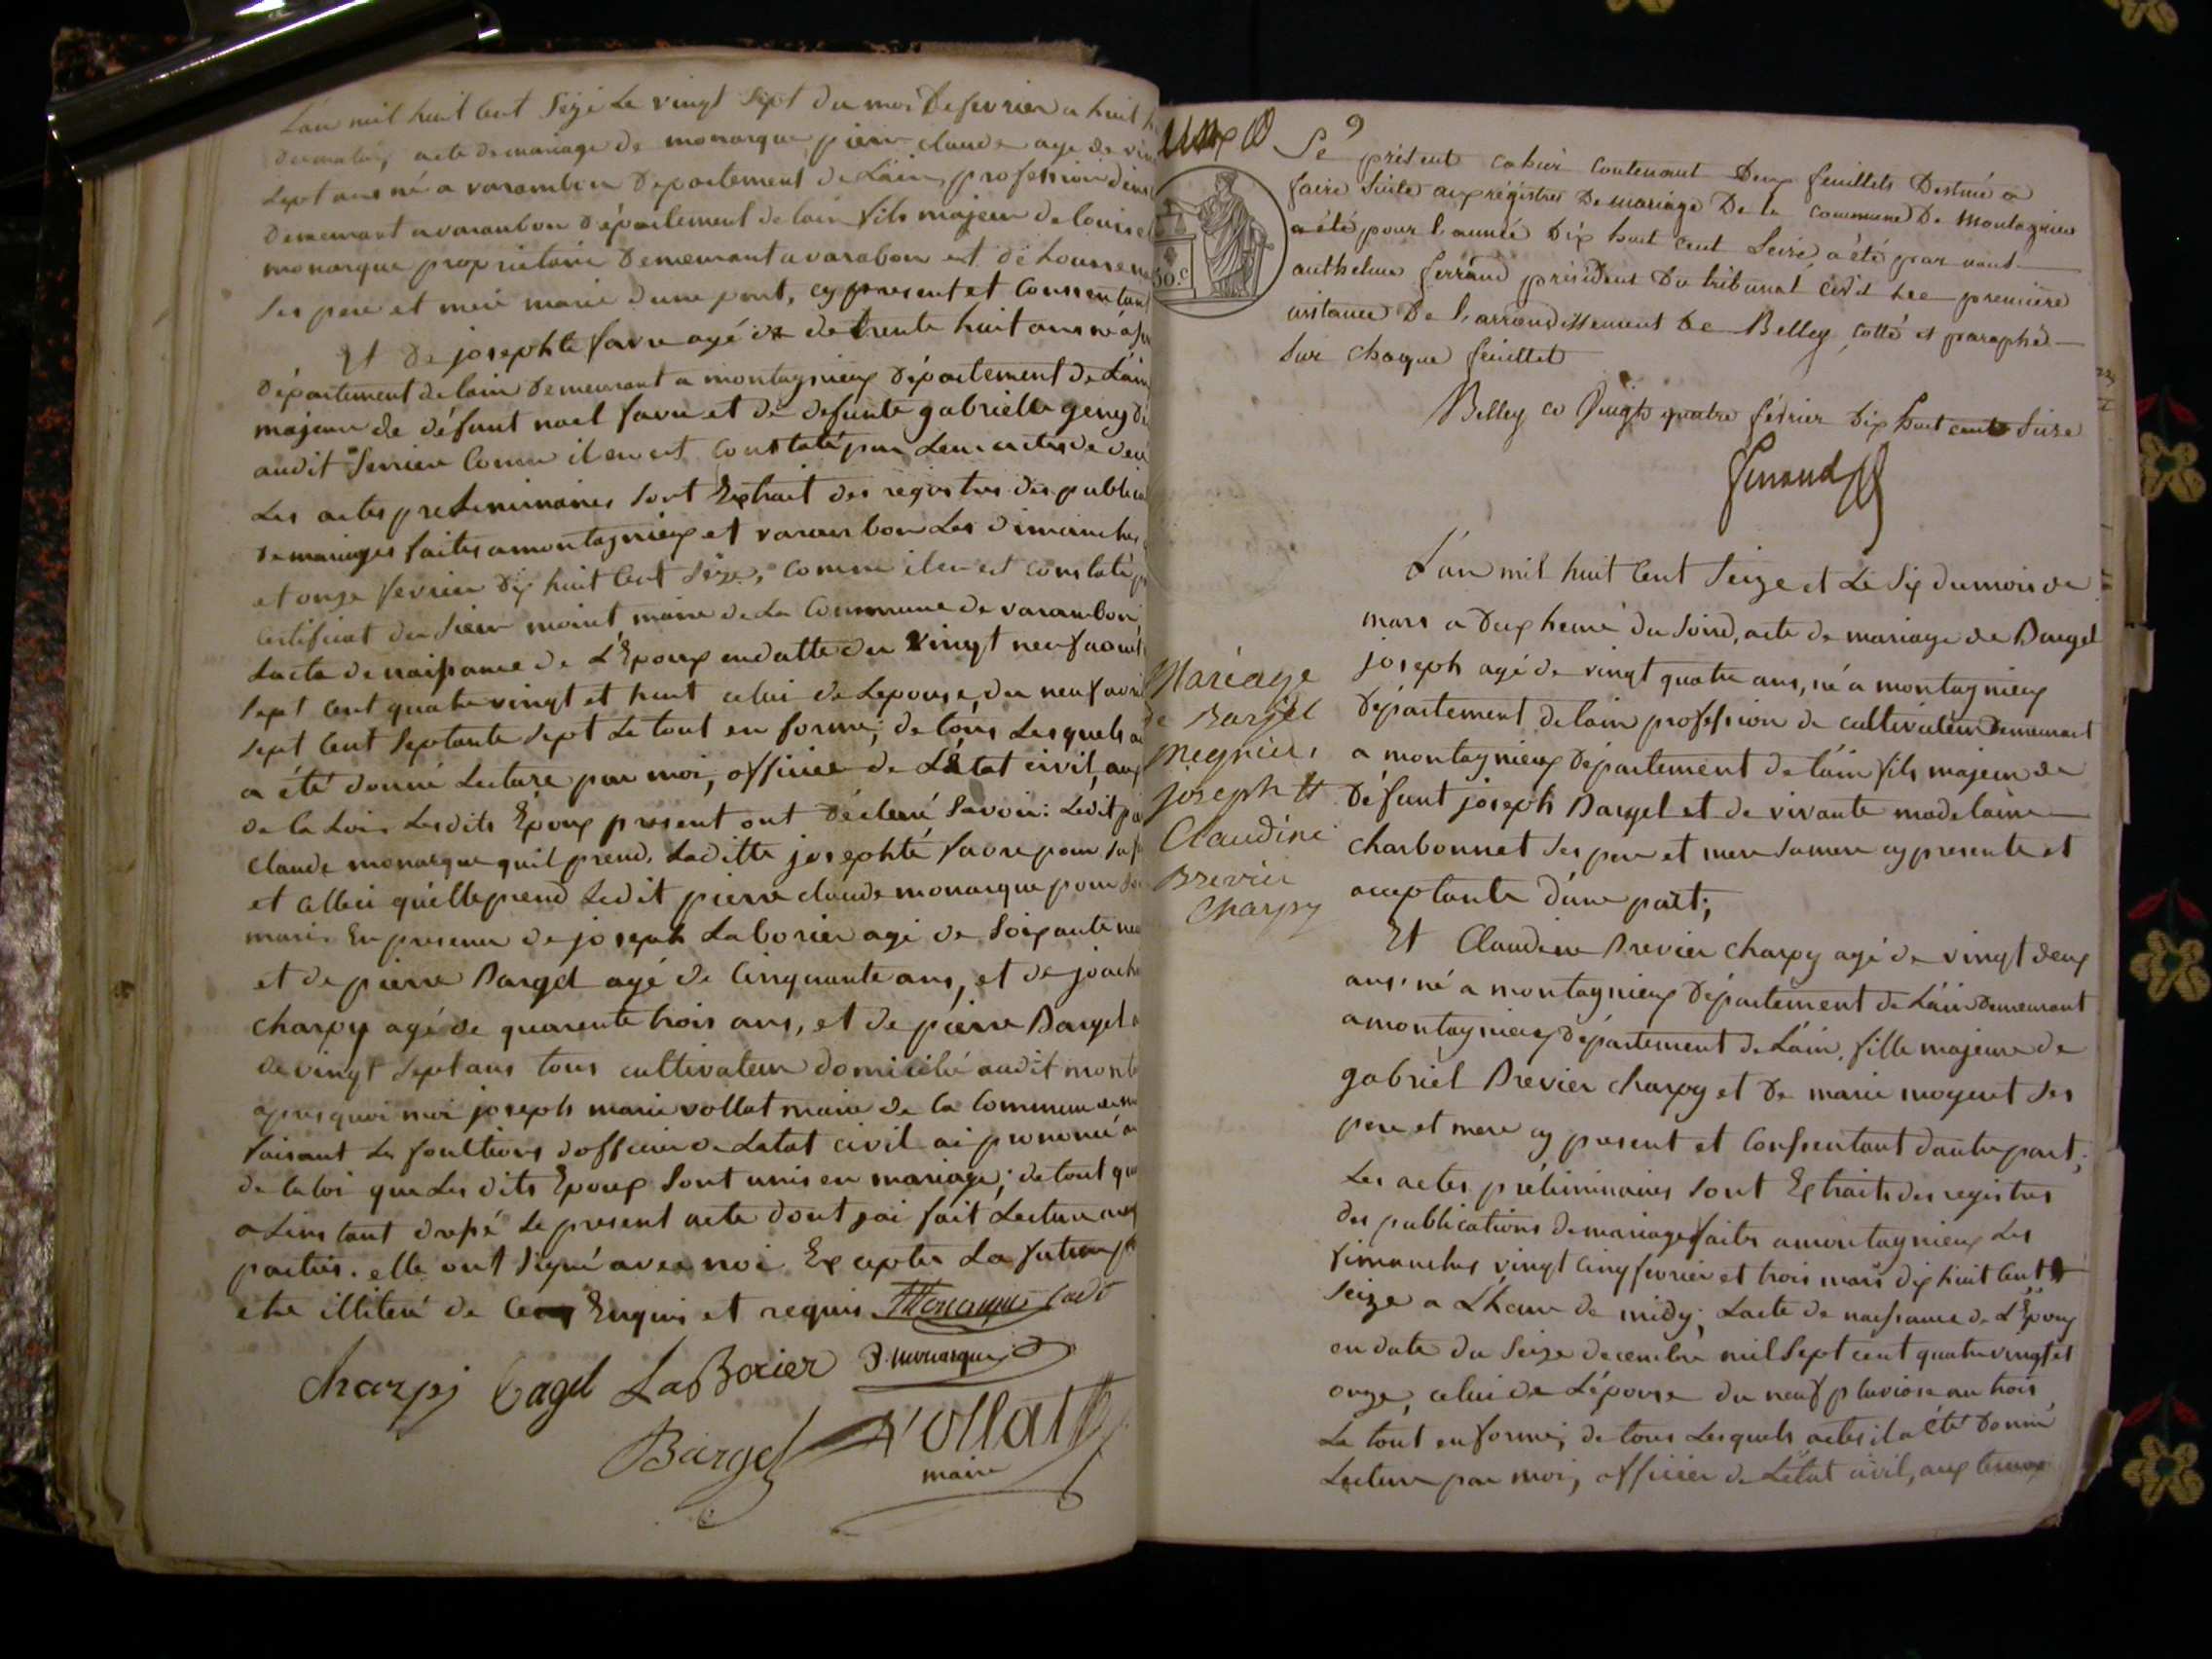 L'an mil huit Cent Seize Le vingt Sept du mois De fevrier a huit
du matin, acte de mariage de monarque pierre claude age de
Sept ans né a varambon Departement de L'ain, profession
Demeurant a varambon département de lain fils majeur de
monarque propriétaire Demeurant a varabon et de
Ses pere et mere marie dune part, cy present et Consentant
Et de josephte favre agé de trente huit ans né a
Département de lain Demeurant a montagnieux département de L'ain
majeur de défunt noel favre et de defunte gabrielle geny
audit Serrieu Comme il en est constaté par Leur actes de
Les actes preliminaires Sont Extrait des registres des
De mariages faites a montagnieux et varambon Les dimanches
et onze fevrier dix huit Cent Seize, comme il en est constaté
Certificat du Sieur maire de La Commune de varambon
Lacte de naissance de L'Epoux en datte du vingt neuf
Sept Cent quatre vingt et huit celui de Lepouse, du neuf
Sept Cent Septante Sept Le tout en forme; de tous Lesquels
a été donné Lecture par moi, officier de L'Etat civil, aux
de la Loi. Lesdits Epoux present ont déclaré Savoir: Ledit
Claude monarque quil prend Laditte josephte favre pour
et Celleci qu'elle prend Ledit pierre claude monarque pour
mari. En presence de joseph Laborier agé de Soixante
et de pierre Bargel agé de Cinquante ans, et de
charpy agé de quarente trois ans, et de pierre Bargel
de vingt Sept ans tous cultivateur domicilié audit
apres quoi moi joseph marie vollat maire de la Commune
faisant Les fonctions dofficier de Letat civil ai prononcé
de la loi que Les dits Epoux Sont unis en mariage; de tout
a Linstant dressé Le present acte dont jai fait Lecture
parties. elle ont Signé avec moi Excepter La future
etre illiteré de Enquis et requis
Charpy Bagel LaBorier P. monarque
Bargel Vollat
maire
9
Le présent cahier contenant Deux feuillets Destiné a
faire Suite aux régistres De mariage De la commune De Montagnieu
a été pour l'année Dix huit cent Seize a été par nous
anthelme ferrand président Du tribunal civil De première
instance De l'arrondissement De Belley cotté et paraphé
Sur chaque feuillet
Belley ce Vingt quatre février Dix huit cent Seize
ferrand
50.c
L'an mil huit Cent Seize et Le Six du mois de
mars a deux heure du Soird, acte de mariage de Bargel
joseph agé de vingt quatre ans, né a montagnieux
département de lain profession de cultivateur Demeurant
a montagnieux département de lain fils majeur de
défunt joseph Bargel et de vivante madelaine
charbonnet Ses pere et mere Sa mere cy presente et
acceptante d'une part;
Mariage
de Bargel
joseph et
Claudine
Brevier
Charpy
Et Claudine Brevier charpy agé de vingt deux
ans né a montagnieux département de L'ain Demeurant
a montagnieux département de L'ain, fille majeure de
gabriel Brevier charpy et De marie moyret Ses
pere et mere cy present et Consentant dautre part;
Les actes préliminaires Sont Extraits des registres
des publications de mariage faites a montagnieux Les
dimanches vingt Cinq fevrier et trois mars dix huit Cent
Seize a L'heure de midy; Lacte de naissance de L'Epoux
en date du Seize decembre mil Sept cent quatre vingt et
onze, celui de L'épouse du neuf pluviose an trois
Le tout en forme; de tous Lesquels actes il a été donné
Lecture par moi, officier de L'état civil, aux termes